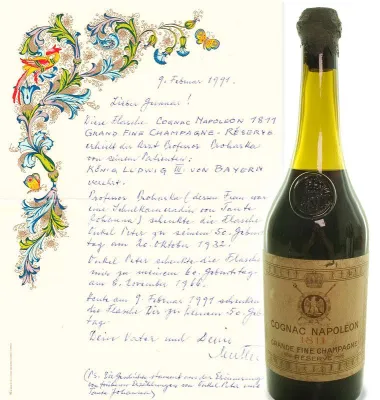 9. Februar 1991.
Lieber Gunnar!
Diese Flasche COGNAC NAPOLEON 1811
GRAND FINE CHAMPAGNE - RÉSERVE
erhielt der Arzt Professor Prohaska
von seinem Patienten:
KÖNIG LUDWIG III VON BAYERN
verehrt.
Professor Prohaska (deren Frau war
eine Schulkameradin von Tante
Johanna) schenkte die Flasche
Onkel Peter zu seinem 50. Geburts
tag am 20. Oktober 1932.
Onkel Peter schenkte die Flasche
mir zu meinem 60. Geburtstag
am 8. November 1966.
Heute am 9. Februar 1991 schenken wir
die Flasche Dir zu Deinem 50. Geburts
tag.
Dein Vater und Deine
Mutter
(Ps. Die Geschichte stammt aus der Erinnerung
von früheren Erzählungen von Onkel Peter und
Tante Johanna)
COGNAC NAPOLÉON
1811
GRANDE FINE CHAMPAGNE
RÉSERVE